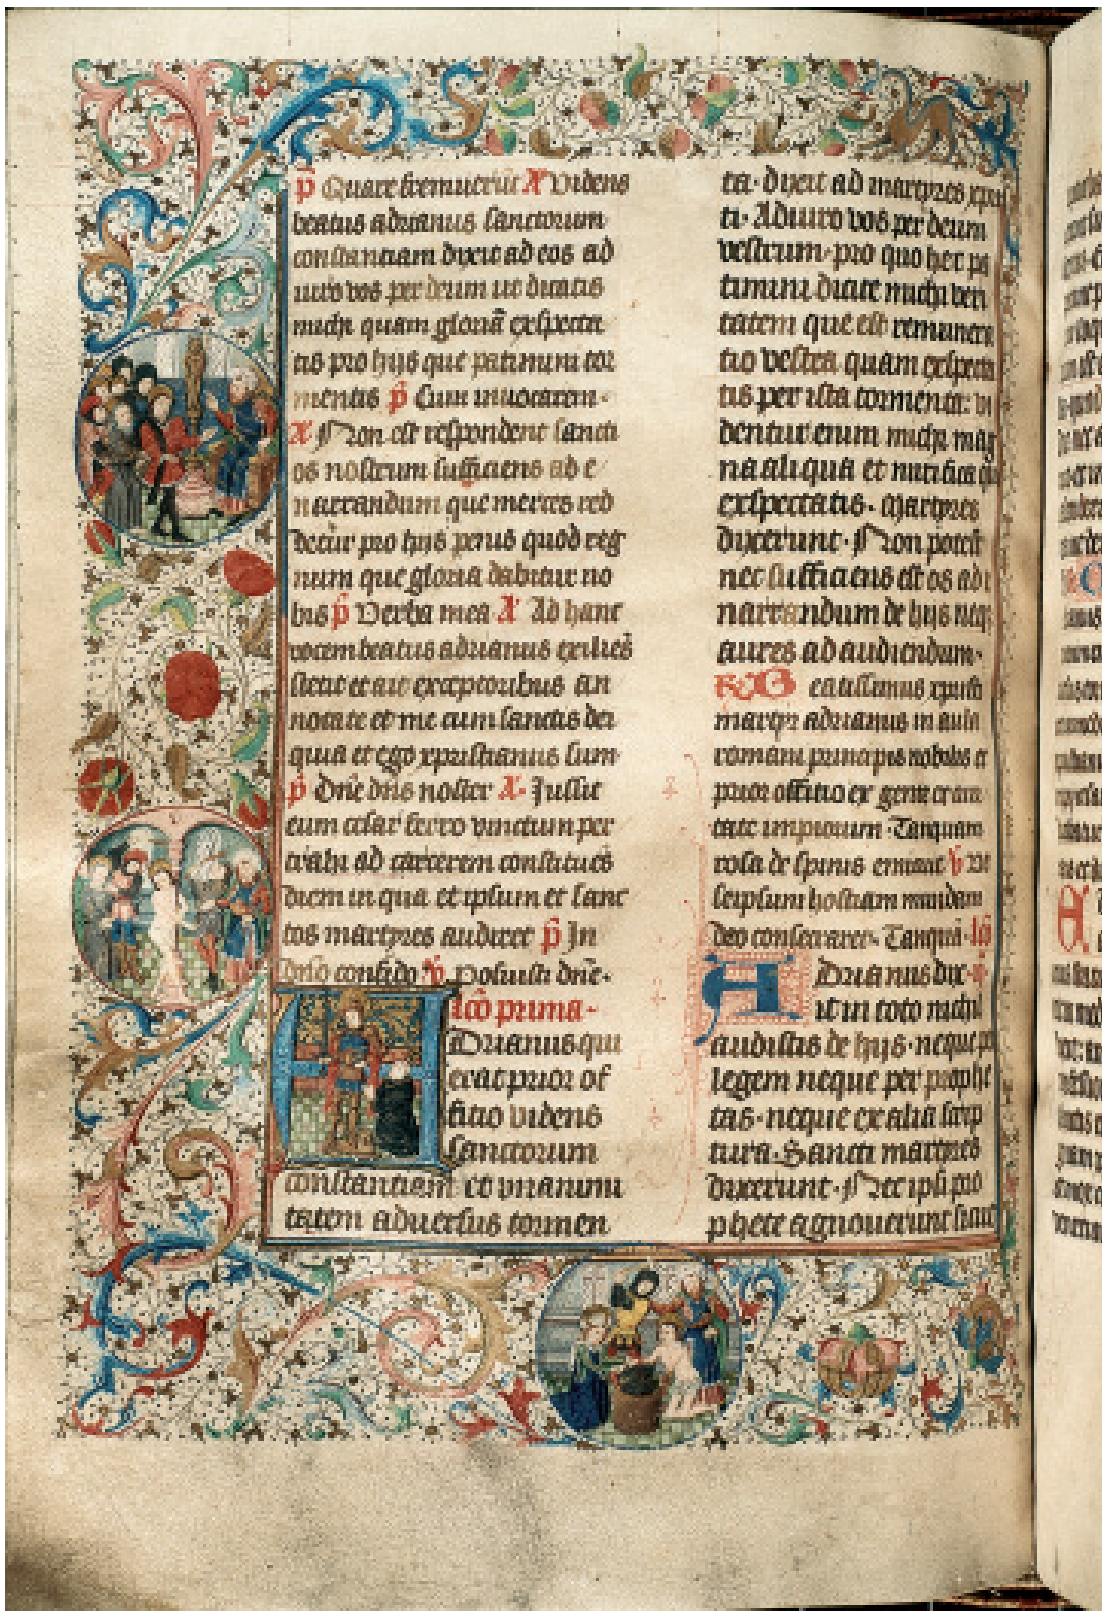 p̄ Quare fremuerūt A Videns
beatus adrianus sanctorum
constanciam dixit ad eos ad
iuro vos per deum ut dicatis
michi quam gloriā exspecta
tis pro hijs que patimini tor
mentis p̄ Cum inuocarem·
A Non est respondent sancti
os nostrum sufficiens ad e
narrandum que merces red
detur pro hijs penis quod reg
num que gloria dabitur no
bis p̄ Verba mea A Ad hanc
vocem beatus adrianus exiliēs
stetit et ait exceptoribus an
notate et me cum sanctis dei
quia et ego xpristianus sum
p̄ Dn̄e dn̄s noster A· Jussit
eum cesar ferro vinctum per
trahi ad carcerem constituēs
diem in qua et ipsum et sanc
tos martyres audiret p̄ In
dn̄o confido v̄ Posuisti dn̄e·
lcō prima·
Adrianus qui
erat prior of
ficio videns
sanctorum
constantiam et vnanimi
tatem aduersus tormen
ta· dixit ad martyres xpris
ti· Adiuro vos per deum
vestrum· pro quo hec pa
timini dicite michi veri
tatem que est remunera
tio vestra quam exspecta
tis per ista tormenta: vi
dentur enim michi mag
na aliqua et mirifica que
exspectatis· Martyres
dixerunt· Non potest
nec sufficiens est os ad e
narrandum de hijs neque
aures ad audiendum·
R Beatissimus xpristi
martyr adrianus in aula
romani principis nobilis et
prior officio ex gente et ciui
tate impiorum· Tanquam
rosa de spinis emicuit v̄ Vt
seipsum hostiam mundam
deo consecraret· Tanquā· lcō
Adrianus dix
it in toto nichil
audistis de hijs· neque per
legem neque per prophe
tas· neque ex alia scrip
tura· Sancti martyres
dixerunt· Nec ipsi pro
phete agnouerunt sicut